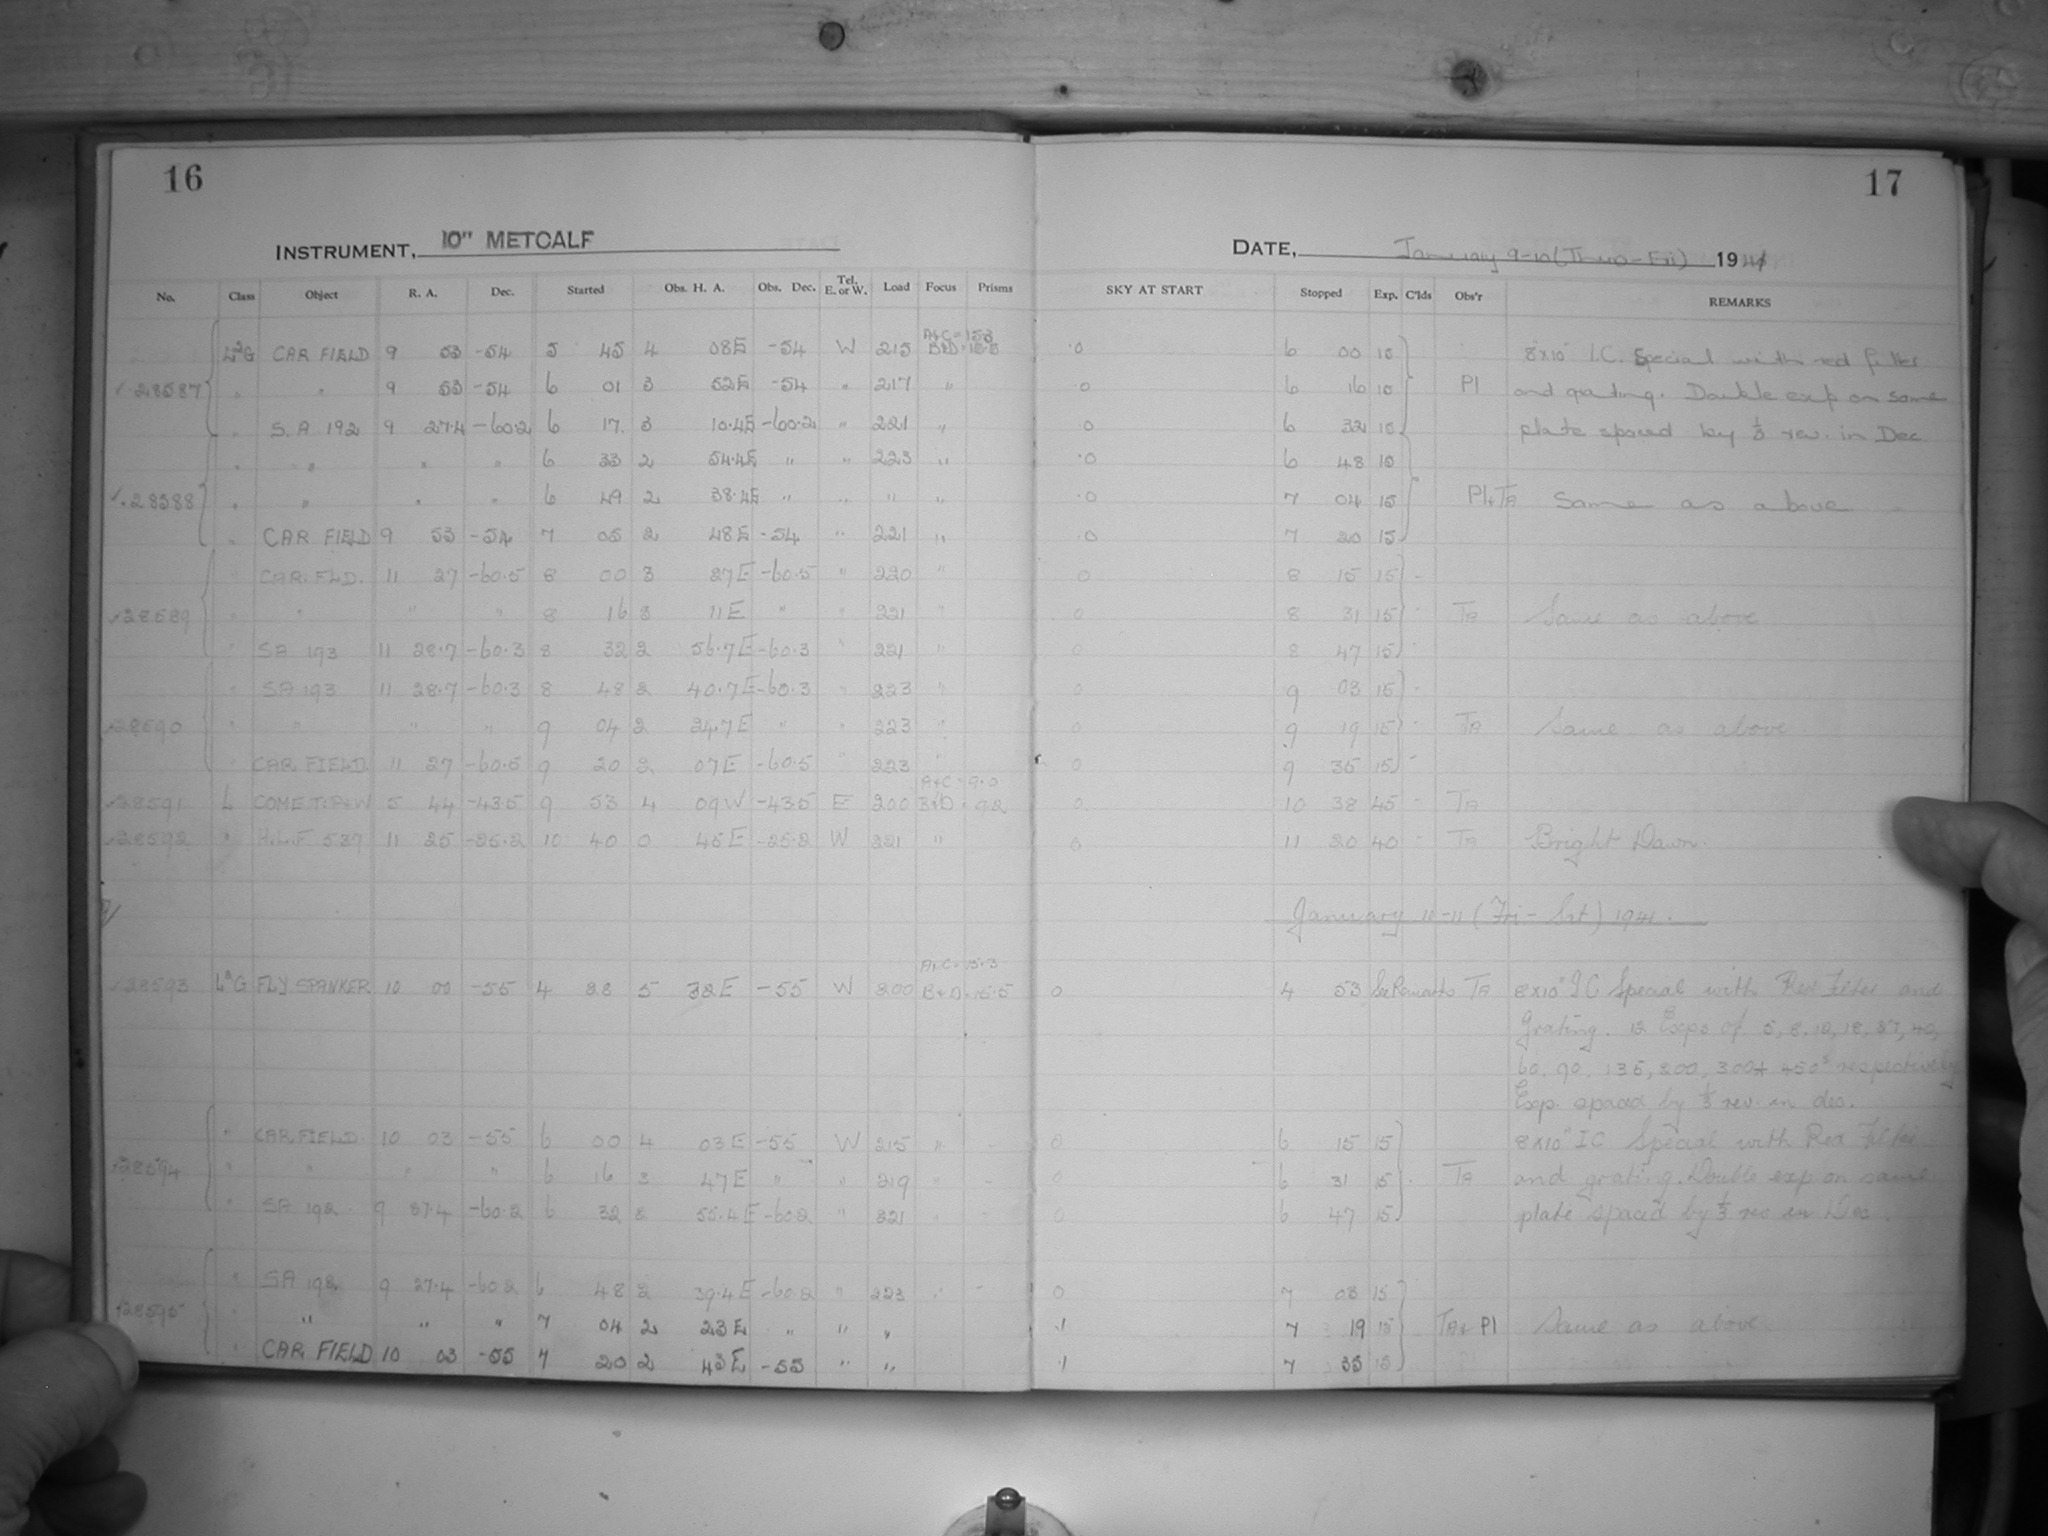 16
INSTRUMENT, 10" METCALF
No. Class Object R. A. Dec. Started Obs. H. A. Obs. Dec. Tel. E. or W. Load Focus Prisms
A+C = 15.3
CAR FIELD 9 53 -54 5 45 4 08E -54 W 215 B+D = 15.5
28587 " " 9 53 -54 6 01 3 52E -54 " 217 "
" S.A. 192 9 27.4 -60.2 6 17. 3 10.4E -60.2 " 221 "
" " " " 6 33 2 54.4E " " 223 "
28588 " " " " 6 49 2 38.4E " " " "
" CAR FIELD 9 53 -54 7 05 2 48E -54 " 221 "
" CAR. FLD. 11 27 -60.5 8 00 3 27E -60.5 " 220 "
28589 " " " " 8 16 3 11E " " 221 "
" SA 193 11 28.7 -60.3 8 32 2 56.7E -60.3 " 221 "
" SA 193 11 28.7 -60.3 8 48 2 40.7E -60.3 " 223 "
28590 " " " " 9 04 2 24.7E " " 223 "
CAR FIELD 11 27 -60.5 9 20 2 07E -60.5 " 223 "
A+C = 9.0
28591 L COMET: P+W 5 44 -43.5 9 53 4 09W -43.5 E 200 B+D = 9.2
28592 " H.L.F 537 11 25 -25.2 10 40 0 45E -25.2 W 221 "
A+C = 15.3
28593 FLY SPANKER 10 00 -55 4 28 5 32E -55 W 200 B+D = 15.5
" CAR FIELD 10 03 -55 6 00 4 03E -55 W 215 " -
28594 " " " " 6 16 3 47E " " 219 " -
" SA 192 9 27.4 -60.2 6 32 2 55.4E -60.2 " 221 " -
" SA 192 9 27.4 -60.2 6 48 2 39.4E -60.2 " 223 " -
28595 " " " " 7 04 2 23E " " "
" CAR FIELD 10 03 -55 7 20 2 43E -55 " "
17
DATE, January 9-10 (Thurs-Fri) 1941
SKY AT START Stopped Exp. C'lds Obs'r REMARKS
.0 6 00 15 8"x10" I.C. Special with red filter
.0 6 16 15 Pl and grating. Double exp on same
.0 6 32 15 plate spaced by 1/3 rev. in Dec.
.0 6 48 15
.0 7 04 15 Pl+TA Same as above
.0 7 20 15
0 8 15 15 -
0 8 31 15 TA Same as above
0 8 47 15
0 9 03 15
0 9 19 15 TA Same as above.
0 9 35 15
0 10 38 45 TA
0 11 20 40 TA Bright Dawn.
January 10-11 (Fri - Sat) 1941.
0 4 53 See Remarks TA 8x10" IC Special with Red Filter and
Grating. 12 Exps of 5, 8, 12, 18, 27, 40,
60, 90, 135, 200, 300 + 450s respectively
Exp. spaced by 1/3 rev in dec.
0 6 15 15 8x10" IC Special with Red Filter
0 6 31 15 TA and grating. Double exp on same
0 6 47 15 plate spaced by 1/3 rev in Dec.
0 7 03 15
.1 7 19 15 TA+Pl Same as above.
.1 7 35 15